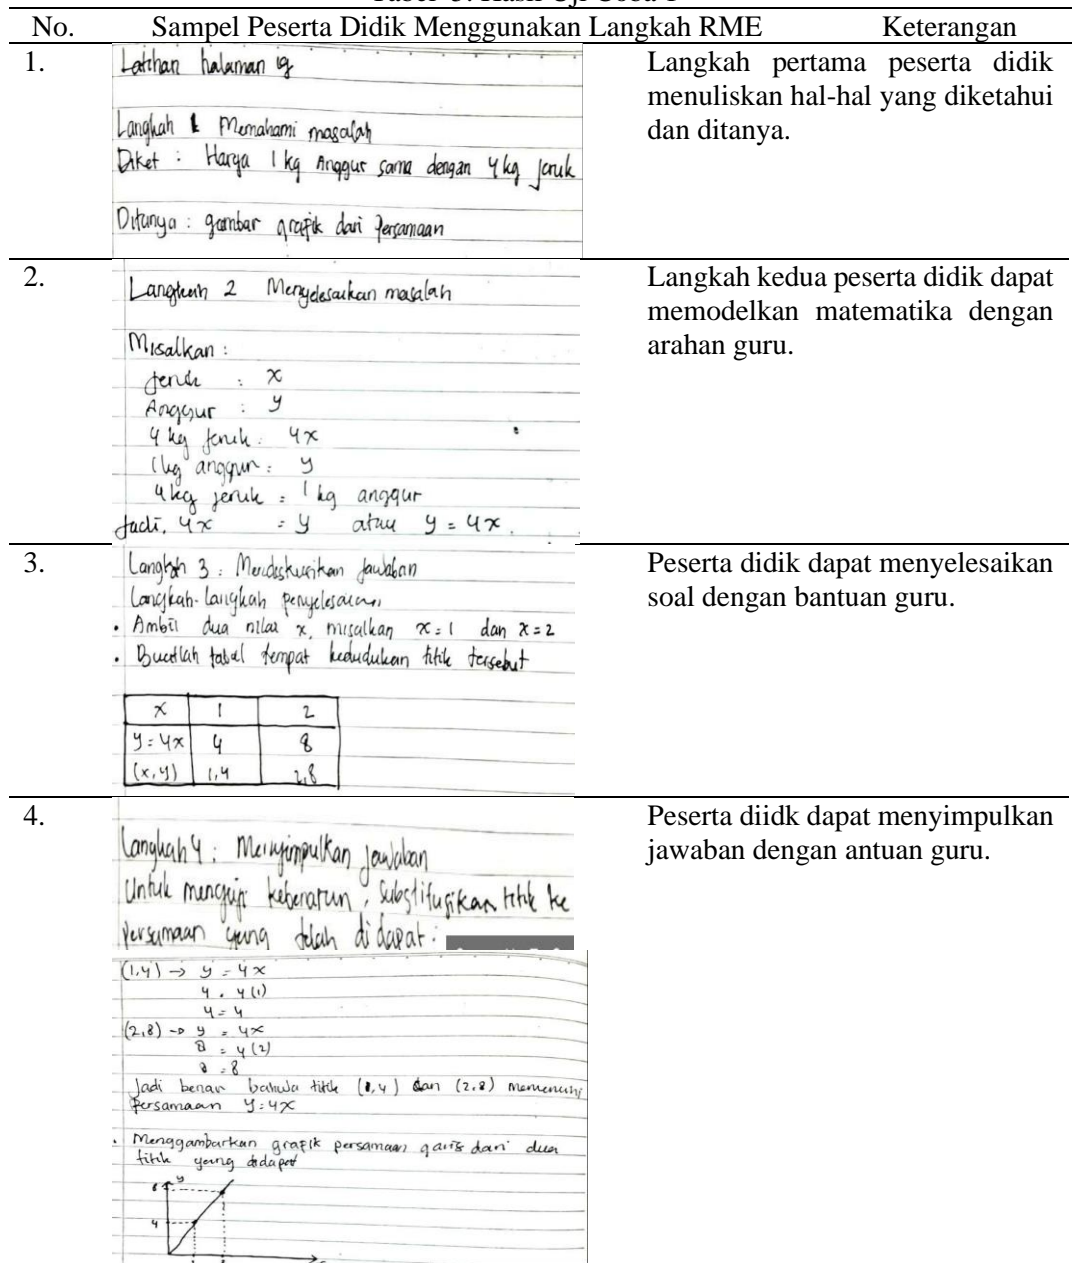 No. Sampel Peserta Didik Menggunakan Langkah RME Keterangan
1.
Latihan halaman 19
Langkah 1 Memahami masalah
Diket : Harga 1 kg Anggur sama dengan 4 kg jeruk
Ditanya : gambar grafik dari Persamaan
Langkah pertama peserta didik
menuliskan hal-hal yang diketahui
dan ditanya.
2.
Langkah 2 Menyelesaikan masalah
Misalkan :
Jeruk : x
Anggur : y
4 kg Jeruk : 4x
1 kg anggur : y
4 kg jeruk = 1 kg anggur
Jadi, 4x = y atau y = 4x.
Langkah kedua peserta didik dapat
memodelkan matematika dengan
arahan guru.
3.
Langkah 3 : Mendiskusikan Jawaban
Langkah-langkah penyelesaian
• Ambil dua nilai x, misalkan x = 1 dan x = 2
• Buatlah tabel tempat kedudukan titik tersebut
x 1 2
y = 4x 4 8
(x,y) 1,4 2,8
Peserta didik dapat menyelesaikan
soal dengan bantuan guru.
4.
Langkah 4 : Menyimpulkan Jawaban
Untuk menguji kebenaran, substitusikan titik ke
persamaan yang telah di dapat :
(1,4) → y = 4x
4 = 4(1)
4 = 4
(2,8) → y = 4x
8 = 4(2)
8 = 8
Jadi benar bahwa titik (1,4) dan (2,8) memenuhi
Persamaan y = 4x
• Menggambarkan grafik persamaan garis dari dua
titik yang didapat
8 y
4
Peserta diidk dapat menyimpulkan
jawaban dengan antuan guru.